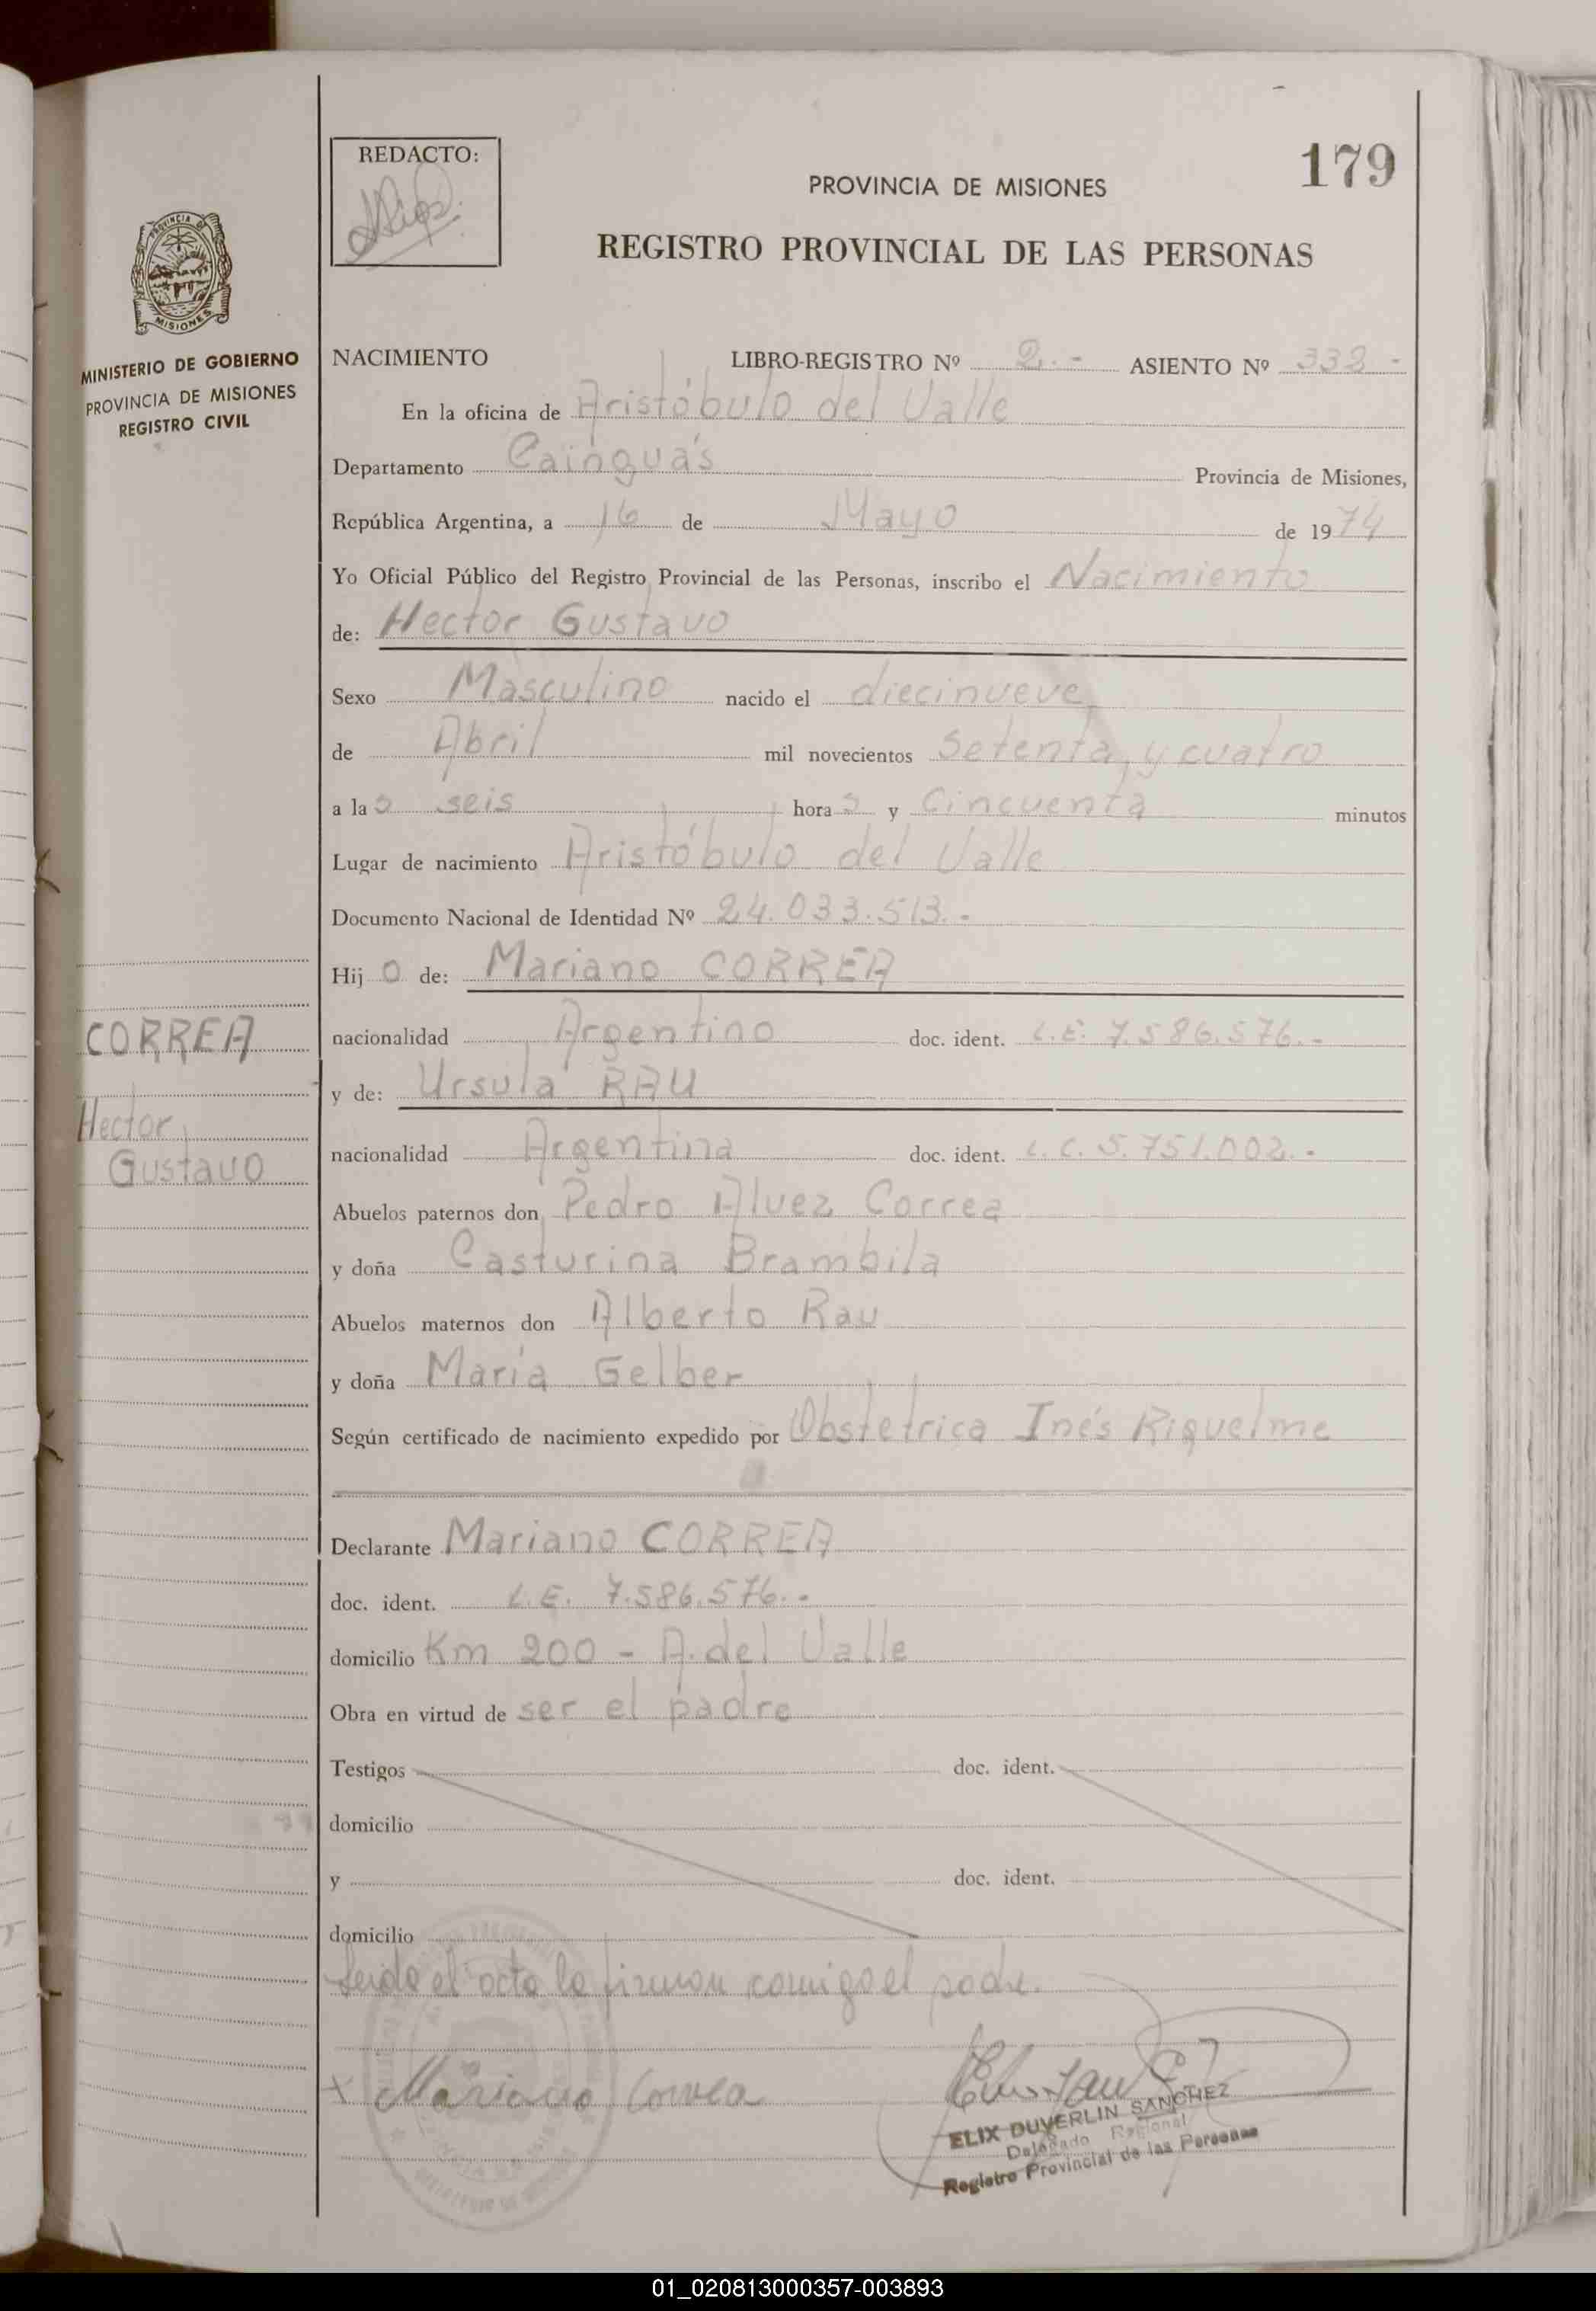 179
REDACTO:
PROVINCIA DE MISIONES
REGISTRO PROVINCIAL DE LAS PERSONAS
PROVINCIA DE
MISIONES
MINISTERIO DE GOBIERNO
PROVINCIA DE MISIONES
REGISTRO CIVIL
NACIMIENTO LIBRO-REGISTRO Nº 2.- ASIENTO Nº 332-
En la oficina de Aristóbulo del Valle
Departamento Cainguás Provincia de Misiones,
República Argentina, a 16 de Mayo de 1974
Yo Oficial Público del Registro Provincial de las Personas, inscribo el Nacimiento
de: Hector Gustavo
Sexo Masculino nacido el diecinueve
de Abril mil novecientos setenta y cuatro
a las seis horas y Cincuenta minutos
Lugar de nacimiento Aristóbulo del Valle
Documento Nacional de Identidad Nº 24.033.513.-
Hijo de: Mariano CORREA
CORREA
nacionalidad Argentino doc. ident. L.E. 7.586.576.-
y de: Ursula RAU
Hector
Gustavo
nacionalidad Argentina doc. ident. L.C. 5.751.002.-
Abuelos paternos don Pedro Alvez Correa
y doña Casturina Brambila
Abuelos maternos don Alberto Rau
y doña María Gelber
Según certificado de nacimiento expedido por Obstetrica Inés Riquelme
Declarante Mariano CORREA
doc. ident. L.E. 7.586.576.-
domicilio Km 200 - A. del Valle
Obra en virtud de ser el padre
Testigos doc. ident.
domicilio
y doc. ident.
domicilio
Leida el acta la firman comigo el padre.
x Mariano Correa
ELIX DUVERLIN SANCHEZ
Delegado Regional
Registro Provincial de las Personas
01_020813000357-003893